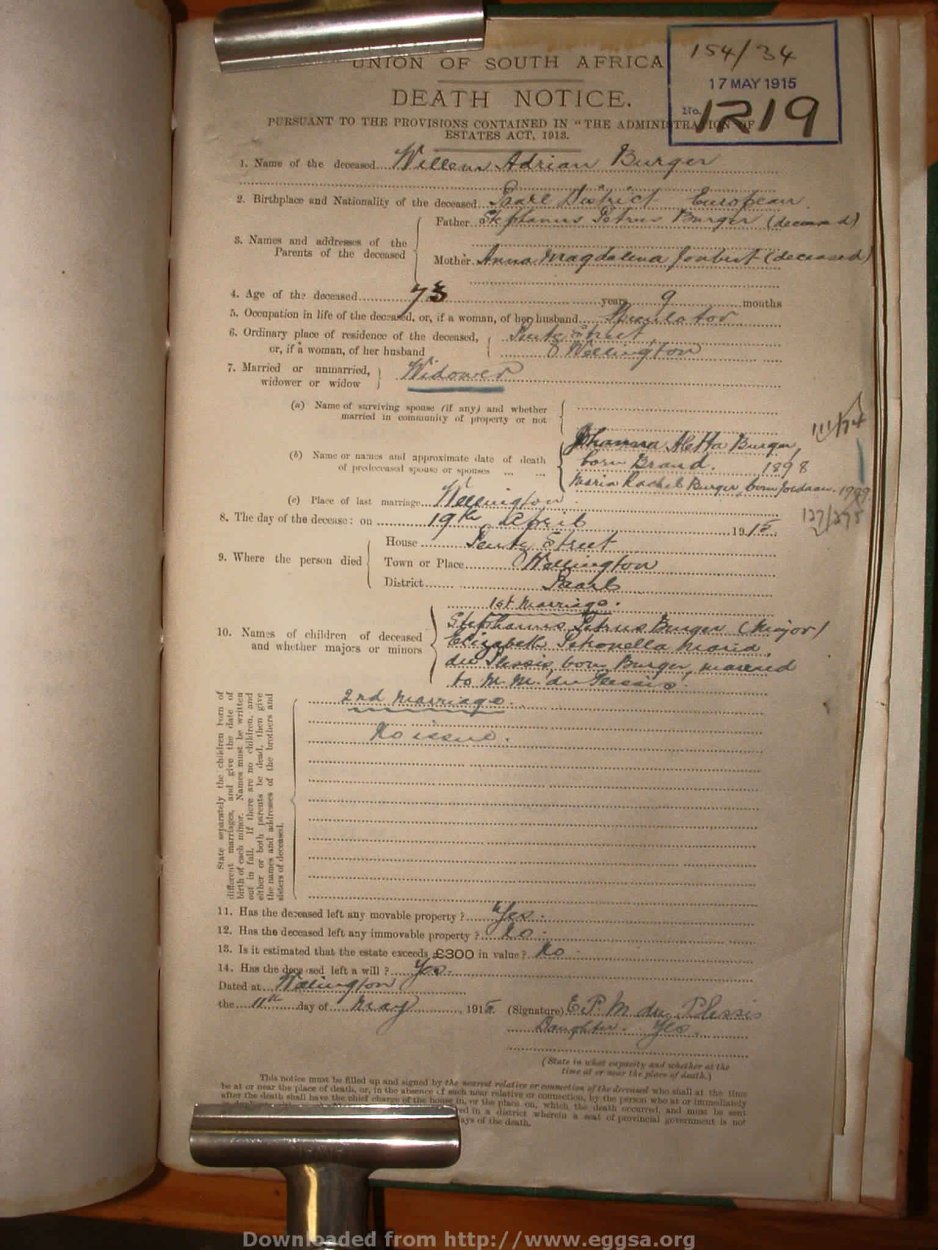 154/34
17 MAY 1915
No. 1219
UNION OF SOUTH AFRICA
DEATH NOTICE.
PURSUANT TO THE PROVISIONS CONTAINED IN "THE ADMINISTRATION OF
ESTATES ACT, 1913.
1. Name of the deceased Willem Adrian Burger
2. Birthplace and Nationality of the deceased Paarl District European
3. Names and addresses of the Parents of the deceased
Father Stephanus Petrus Burger (deceased)
Mother Anna Magdalena Joubert (deceased)
4. Age of the deceased 73 years 9 months
5. Occupation in life of the deceased, or, if a woman, of her husband Speculator
6. Ordinary place of residence of the deceased, Street
or, if a woman, of her husband Wellington
7. Married or unmarried, widower or widow Widower
(a) Name of surviving spouse (if any) and whether
married in community of property or not
111/74
(b) Name or names and approximate date of death
of predeceased spouse or spouses
Johanna Aletta Burger,
born Brand. 1898
Maria Rachel Burger, born Jordaan.
(c) Place of last marriage Wellington
127/275
8. The day of the decease: on 19th April 1915
9. Where the person died
House Street
Town or Place Wellington
District Paarl
10. Names of children of deceased
and whether majors or minors
1st Marriage.
Stephanus Petrus Burger (Major)
Elizabeth Petronella Maria
du Plessis, born Burger, married
to M. M. du Plessis.
State separately the children born of
different marriages, and give the date of
birth of each minor. Names must be written
out in full. If there are no children, and
either or both parents be dead, then give
the names and addresses of the brothers and
sisters of deceased.
2nd Marriage.
No issue.
11. Has the deceased left any movable property? Yes.
12. Has the deceased left any immovable property? No.
13. Is it estimated that the estate exceeds £300 in value? No
14. Has the deceased left a will? Yes.
Dated at Wellington
the 11th day of May, 1915. (Signature) E. P. M. du Plessis
Daughter. Yes.
(State in what capacity and whether at the
time at or near the place of death.)
This notice must be filled up and signed by the nearest relative or connection of the deceased who shall at the time
be at or near the place of death, or, in the absence of such near relative or connection, by the person who at or immediately
after the death shall have the chief charge of the house in, or the place on, which, the death occurred, and must be sent
in a district wherein a seat of provincial government is not
days of the death.
Downloaded from http://www.eggsa.org